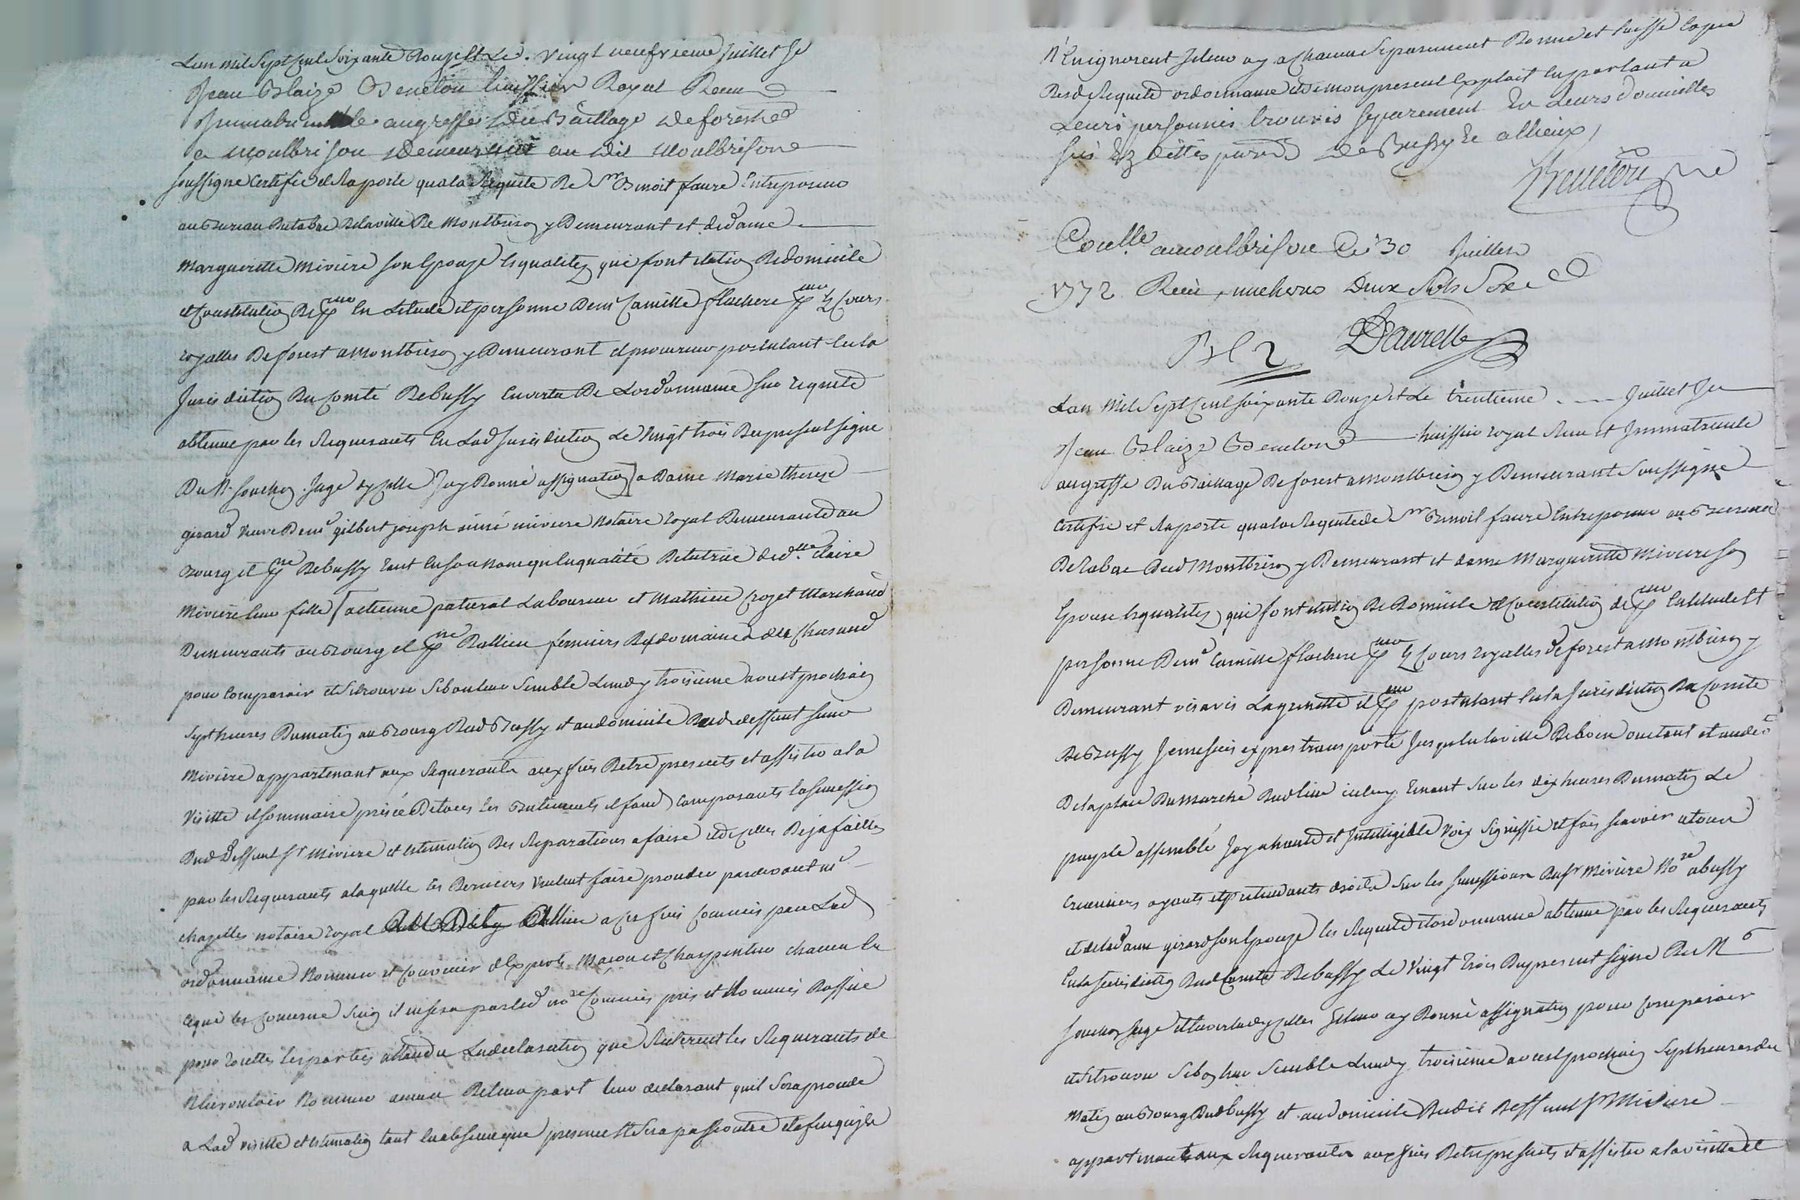 L'an mil Sept Cent Soixante Douze et Le vingt neufvieme Juillet Je
Jean Blaize Beneton huissier Royal Recu
Immatriculé au greffe du Bailliage de forest
a Montbrison Demeurant au dit Montbrison
soussigné Certifie et Raporte qua la Requete De Sr Benoit faure Entreposeur
au Bureau Du tabac De la ville De Montbrison y Demeurant et de dame
Margueritte Miviere son Epouze Es qualités qui font election De domicile
et Constitution De pr en Letude et personne De me Camille flachere pr Es Cours
royalles De forest a Montbrison y Demeurant et procureur postulant En la
Jurisdiction Du Comté De bussy En vertu De Lordonnance sur requete
obtenue par les Requerants En Lad Jurisdiction Le Vingt trois Du present signe
De Mr Souchon Juge dycelle Jay Donné assignation a Dame Marie thereze
girard Veuve De me gilbert joseph aimé miviere Notaire royal Demeurante au
Bourg et psse De bussy tant En son nom qu'En qualité De tutrice de dlle Claire
Miviere leur fille a etienne patural Laboureur et Mathieu Crozet Marchand
Demeurants au Bourg et psse Dallieu fermiers Du domaine de Chasaud
pour Comparoir et se trouver Si bon leur Semble Lundy troisieme aoust prochain
Sept heures Du matin au Bourg Dud Bussy et au domicile Dud deffunt Sieur
Miviere appartenant aux Requerants aux fins De tre presents et assister a la
Visitte et sommaire prisée De tous les Batiments et fond Composants la succession
Dud Deffunt Sr Miviere et estimation Des Reparations a faire et de celles Deja faittes
par les Requerants a laquelle les Derniers Veulent faire proceder pardevant me
chazelles notaire royal a Ces fins Commis par Lad
ordonnance Nommer et Convenir d'Experts Masson et Charpentier chacun En
ce qui les Concerne Sinon il en sera par led nore Commis pris et Nommés Doffice
pour toutes les parties attendu La declaration que Reiterent les Requerants de
N'En vouloir Nommer aucun De leur part leur declarant qu'il Sera procedé
a Lad visitte et Estimation tant En absence que presence et Sera passé outre et afin qu'ils
N'En ignorent Je leur ay a Chacun Separement Donné et Laissé Copie
Desd Requete ordonnance et De mon present Exploit En parlant a
Leurs personnes trouvés separement En Leurs domicilles
sis Es dittes parses De Bussy et allieux,
Benetton
Conllé a montbrison Le 30 Juillet
1772 Recu neuf Deux Sols Six d
Daurelle
L'an Mil Sept Cent Soixante Douze et Le trentieme Juillet Je
Jean Blaize Benetone huissier royal Recu et Immatriculé
au greffe Du Bailliage De forest a Montbrison y Demeurant Soussigné
Certifie et Raporte qua la Requete de Sr Benoit faure Entreposeur au Bureau
De tabac Dud Montbrison y Demeurant et dame Margueritte Miviere son
Epouse Es qualités qui font election De Domicile et Constitution de pr En letude Et
personne De me Camille flachere pr Es Cours royalles de forest a Montbrison y
Demeurant visavis La grenette et pr postulant En la Jurisdiction Du Comté
De Bussy Je me suis exprès transporté Jusqu'En la ville De boen ou etant et au devt
De la place Du marché Dud lieu Environ Sur les dix heures Du matin Le
peuple assemblé Jay a haute et Intelligible Voix Signiffié et fais scavoir a tous
Creanciers ayants et pretendants droits Sur les successions Du Sr Miviere Nore a bussy
et de la dame girard son Epouze les Requete et ordonnance obtenue par les Requerants
En la Jurisdiction Dud Comté De bussy Le Vingt trois Du present signé De Mr
Souchon Juge et Jay Donné assignation pour Comparoir
et se trouver Si bon leur Semble Lundy troisieme aoust prochain Sept heures du
Matin au Bourg Dud bussy et au domicile Dudit Deffunt Sr Miviere
appartenant aux Requerants aux fins De tre presents et assister a la visitte et